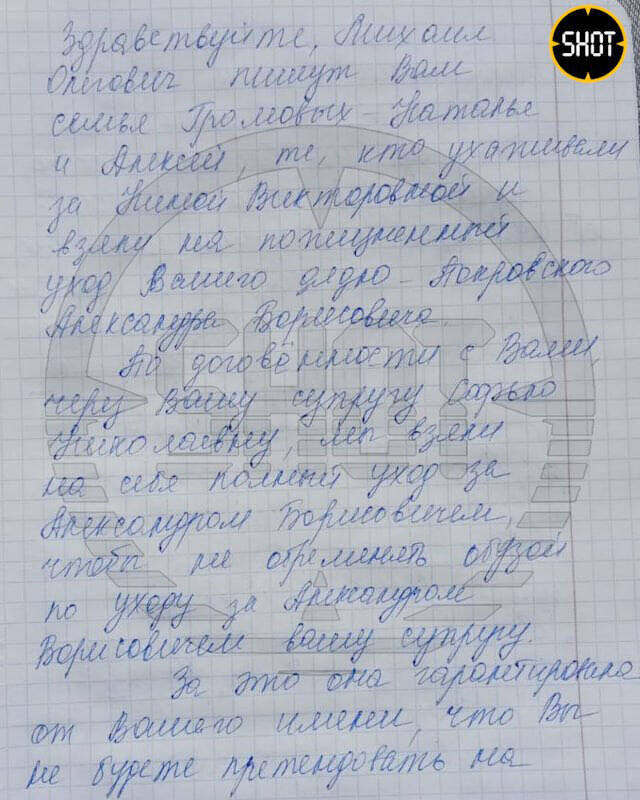 SHOT
Здравствуйте, Михаил
Олегович пишут Вам
семья Громовых - Наталья
и Алексей, те, кто ухаживали
за Ниной Викторовной и
взяли на пожизненный
уход Вашего дядю - Покровского
Александра Борисовича.
По договённости с Вами,
черу Вашу супругу Софью
Николаевну, мы взяли
на себя полный уход за
Александром Борисовичем,
чтобы не обременять обузой
по уходу за Александром
Борисовичем вашу супругу.
За это она гарантировала
от Вашего имени, что Вы
не будете претендовать на
SHOT